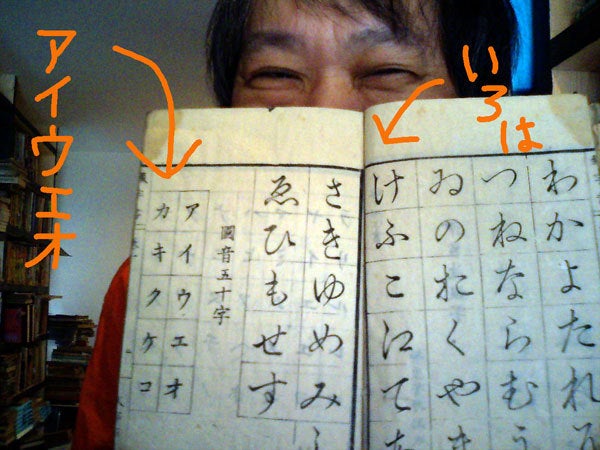 アイウエオ
いろは
わかよたれそ
つねならむう
ゐのおくやま
けふこ江てあ
さきゆめみし
ゑひもせす
國音五十字
アイウエオ
カキクケコ